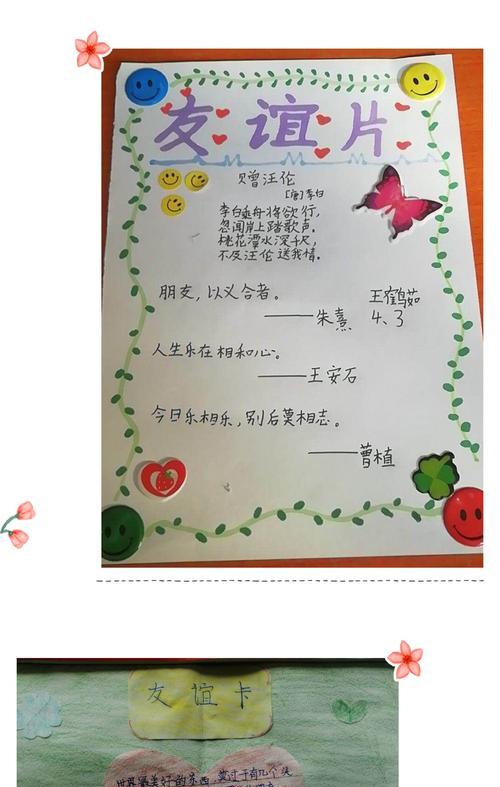 友谊片
赠汪伦
[唐]李白
李白乘舟将欲行，
忽闻岸上踏歌声。
桃花潭水深千尺，
不及汪伦送我情。
朋友，以义合者。
——朱熹
王鹤茹
4、3
人生乐在相和心。
——王安石
今日乐相乐，别后莫相志。
——曹植
友谊卡
世界最美好的东西，莫过于有几个头